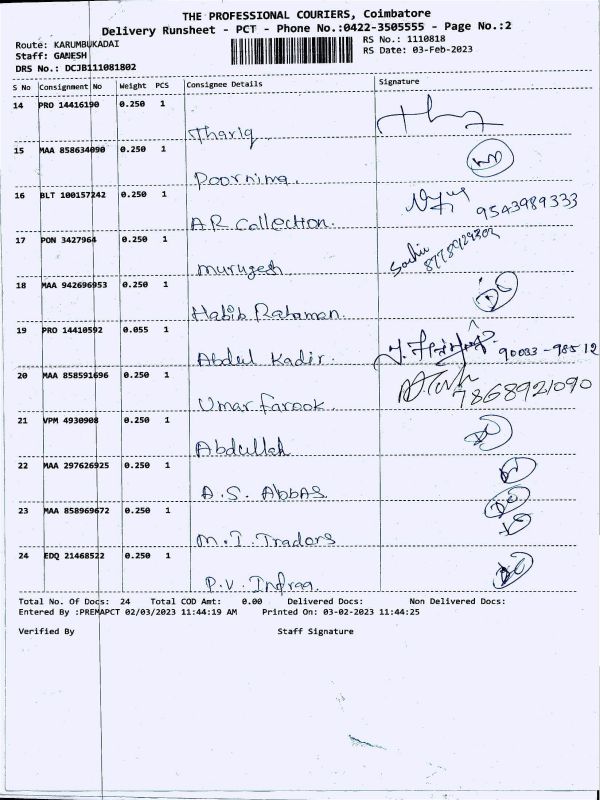 THE PROFESSIONAL COURIERS, Coimbatore
Delivery Runsheet - PCT - Phone No.:0422-3505555 - Page No.:2
Route: KARUMBUKADAI
RS No.: 1110818
Staff: GANESH
RS Date: 03-Feb-2023
DRS No.: DCJB111081802
S No Consignment No Weight PCS Consignee Details Signature
14 PRO 14416190 0.250 1
Thariq
15 MAA 858634090 0.250 1
Poornima.
16 BLT 100157242 0.250 1
9543989333
A.R Collection.
17 PON 3427964 0.250 1
Murugesh
18 MAA 942696953 0.250 1
Habib Rahaman.
19 PRO 14410592 0.055 1
Abdul Kadir. 90033-98512
20 MAA 858591696 0.250 1
7868921090
Umar farook.
21 VPM 4930908 0.250 1
Abdullah
22 MAA 297626925 0.250 1
A.S. Abbas
23 MAA 858969672 0.250 1
M.I. Tradors
24 EDQ 21468522 0.250 1
P.V. Infraa.
Total No. Of Docs: 24 Total COD Amt: 0.00 Delivered Docs: Non Delivered Docs:
Entered By :PREMAPCT 02/03/2023 11:44:19 AM Printed On: 03-02-2023 11:44:25
Verified By Staff Signature